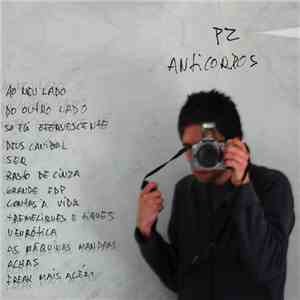 PZ
ANTICORPOS
AO MEU LADO
DO OUTRO LADO
SOFÁ EFERVESCENTE
DEUS CANIBAL
SER
RASTO DE CINZA
GRANDE FDP
CONTAS A VIDA
TREMELIQUES E TIQUES
NEURÓTICA
AS MÁQUINAS MANDAM
ACHAS
FREAK MAIS ALÉM